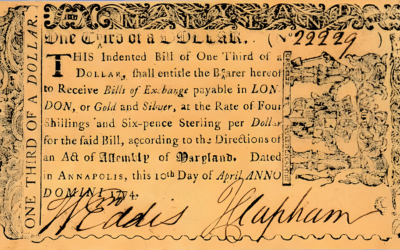 MARYLAND
One Third of a DOLLAR. (No 22229
THIS Indented Bill of One Third of a
DOLLAR, shall entitle the Bearer hereof
to Receive Bills of Exchange payable in LON-
DON, or Gold and Silver, at the Rate of Four
Shillings and Six-pence Sterling per Dollar
for the said Bill, according to the Directions of
an Act of Assembly of Maryland. Dated
in ANNAPOLIS, this 10th Day of April, ANNO
DOMINI 1774.
Wm Eddis J Clapham
ONE THIRD OF A DOLLAR.